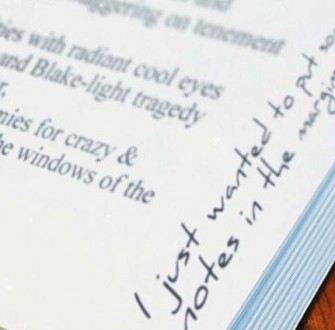 and
staggering on tenement
ies with radiant cool eyes
and Blake-light tragedy
r,
mies for crazy &
he windows of the
I just wanted to put
notes in the margin